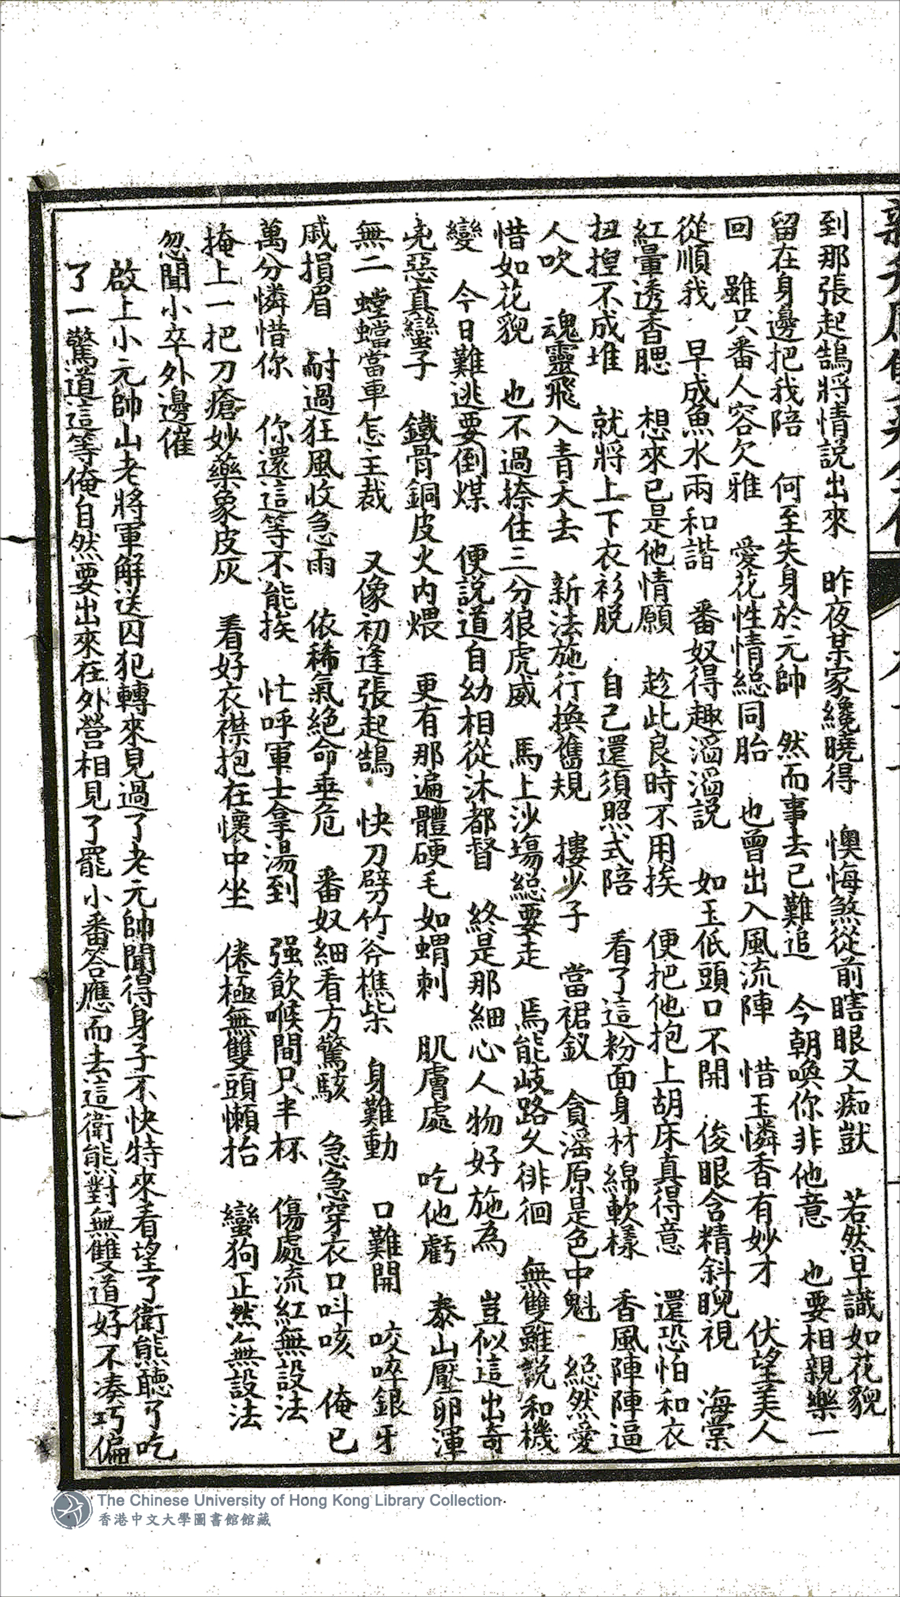 到那張起鵠將情説出來　昨夜某家纔曉得　懊悔煞從前瞎眼又痴獃　若然早識如花貌
留在身邊把我陪　何至失身於元帥　然而事去已難追　今朝喚你非他意　也要相親樂一
回　雖只番人容欠雅　愛花性情緫同胎　也曾出入風流陣　惜玉憐香有妙才　伏望美人
從順我　早成魚水兩和諧　番奴得趣滔滔説　如玉低頭口不開　俊眼含精斜睨視　海棠
紅暈透香腮　想來已是他情願　趁此良時不用挨　便把他抱上胡床真得意　還恐怕和衣
扭揑不成堆　就將上下衣衫脱　自己還須照式陪　看了這粉面身材綿軟樣　香風陣陣逼
人吹　魂靈飛入青天去　新法施行換舊規　摟少子　當裙釵　貪滛原是色中魁　緫然愛
惜如花貌　也不過捺住三分狼虎威　馬上沙塲緫要走　焉能歧路久徘徊　無雙雖説和機
變　今日難逃要倒煤　便説道自幼相從沐都督　終是那細心人物好施為　豈似這出奇
兇惡真蠻子　鐵骨銅皮火内煨　更有那遍體硬毛如蝟刺　肌膚處　吃他虧　泰山壓卵渾
無二　螳螂當車怎主裁　又像初逢張起鵠　快刀劈竹斧樵柴　身難動　口難開　咬碎銀牙
戚損眉　耐過狂風收急雨　依稀氣絕命垂危　番奴細看方驚駭　急急穿衣口呌咳　俺已
萬分憐惜你　你還這等不能挨　忙呼軍士拿湯到　强飲喉間只半杯　傷處流紅無設法
掩上一把刀瘡妙藥象皮灰　看好衣襟抱在懷中坐　倦極無雙頭懶抬　蠻狗正然無設法
忽聞小卒外邊催
啟上小元帥山老將軍解送囚犯轉來見過了老元帥聞得身子不快特來看望了衛熊聽了吃
了一驚道這等俺自然要出來在外營相見了罷小番答應而去這衛熊對無雙道好不湊巧偏
The Chinese University of Hong Kong Library Collection
香港中文大學圖書館館藏